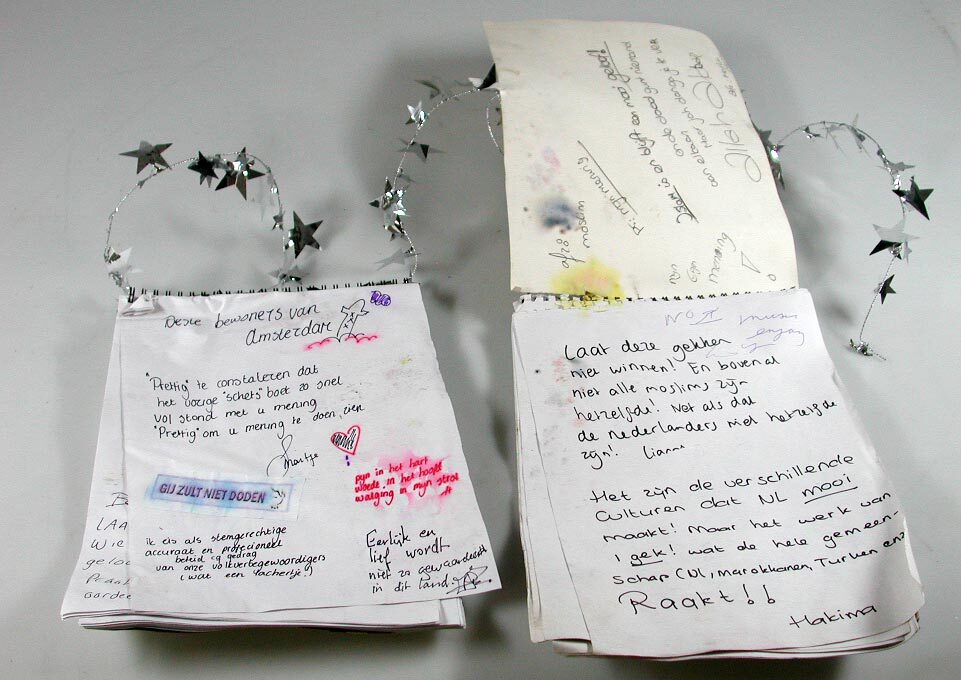 Deze bewoners van
Amsterdam
"Prettig" te constateren dat
het vorige "schets" boek zo snel
vol stond met u mening
"Prettig" om u mening te doen zien
Maartje
GIJ ZULT NIET DODEN
pijn in het hart
woede in het hoofd
walging in mijn strot
ik eis als stemgerechtigde
accuraat en professioneel
beleid en gedrag
van onze volksvertegenwoordigers
(wat een lachertje!)
Eerlijk en
lief wordt
niet zo gewaardeerd
in dit land.
LAA
Wie
geloo
Praat
Gardee
afzo
moslem
ps: mijn mening
Islam is en blijft een mooi geloof!
mijn
eigen
mening
Laat deze gekken
niet winnen! En bovenal
niet alle moslims zijn
hetzelfde! Net als dat
de nederlanders niet hetzelfde
zijn!
Het zijn de verschillende
Culturen dat NL mooi
maakt! Maar het werk van
1 gek! wat de hele gemeen-
schap (NL, marokkanen, Turken enz
Raakt!!
Hakima